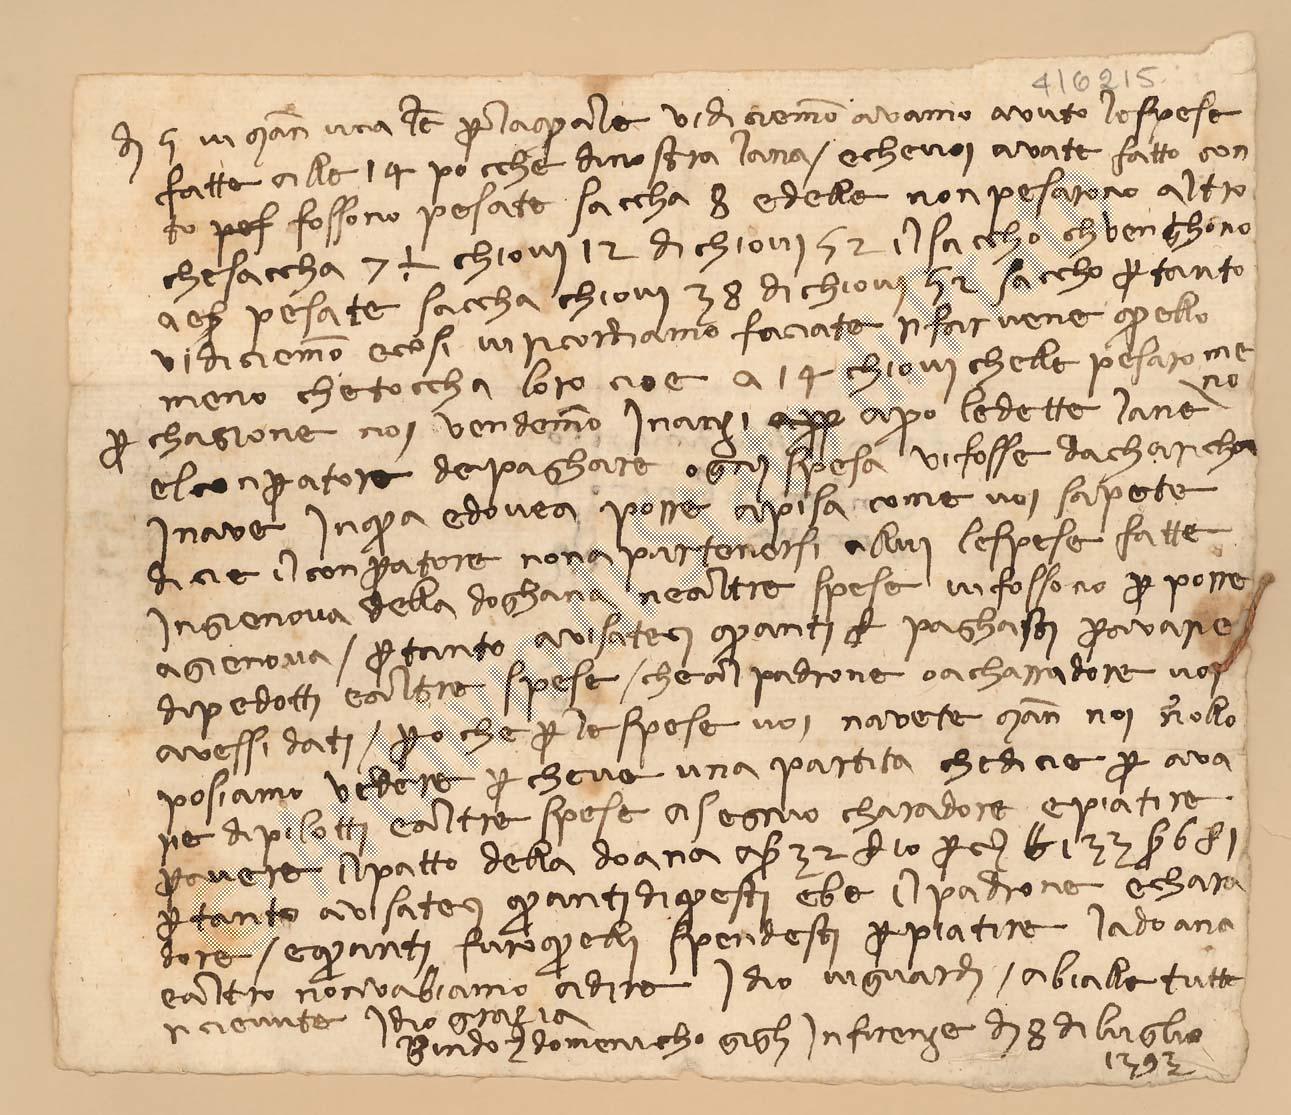 416215
dì 5 vi man una lc p laquale vi diciemo avamo avuto le spese
fatte alle 14 pocche di nostra lana / e che voi avate fatto con
to pes fossono pesate saccha 8 ed elle non pesarono altro
che saccha 7 chiovi 12 di chiovi 52 il saccho ch venghono
a es pesate saccha chiovi 38 di chiovi 52 saccho p tanto
vi diciemo e cosi vi ricordiamo faciate rifarvene quello
meno che toccha loro cioe a 14 chiovi chelle pesaro me
no
p chagione noi vendemo inanzi apo le dette lane
el conpratore de paghare ogni spesa vi fosse da charicha
i nave in qua e dovea porre a pisa come voi sapete
dicie il conpratore nona partenersi allui le spese fatte
in gienova della doghana ne altre spese vi fossono p porre
a gienova / p tanto avisateci quanti f paghasti p avarie
di pedotti e altre spese / che al padrone o a charradore voi
avessi dati / po che p le spese voi navete man noi nollo
posiamo vedere p che ve una partita che dicie p ava
rie di pilotti e altre spese a segnio charadore e piatire
p avere il patto della doana a s 32 d 10 p c
p tanto avisateci quanti di questi ebe il padrone e chara
dore / e quanti furo quelli spendesti p piatire la doana
e altro non vabiamo a dire idio vi guardi / abialle tutte
ricievute idio grazia
Bindo di domenicho gigli in firenze dì 8 di luglio
1393